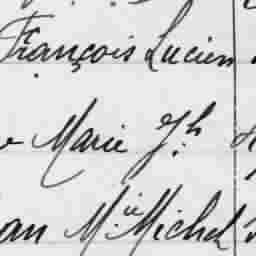 François Lucien
Marie Jh
an M.ie Michel